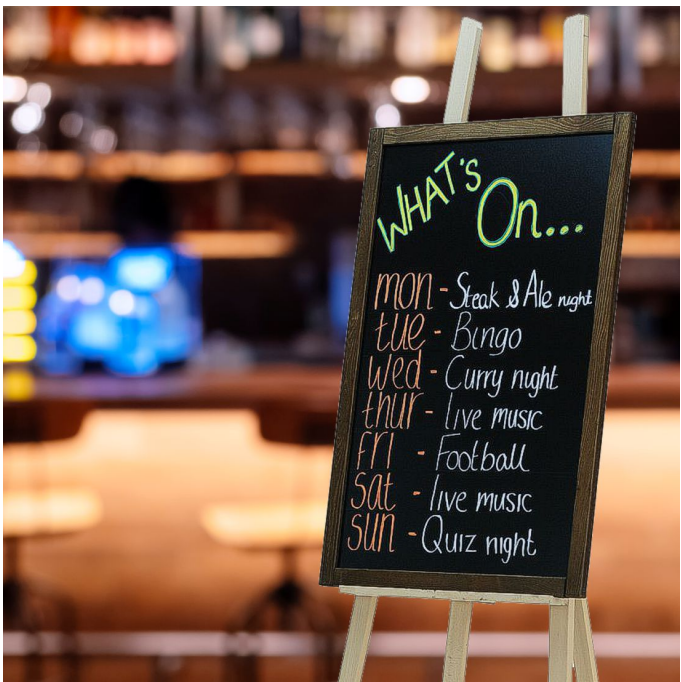 WHAT'S
On...
mon - Steak & Ale night
tue - Bingo
wed - Curry night
thur - live music
FRI - Football
sat - live music
sun - Quiz night